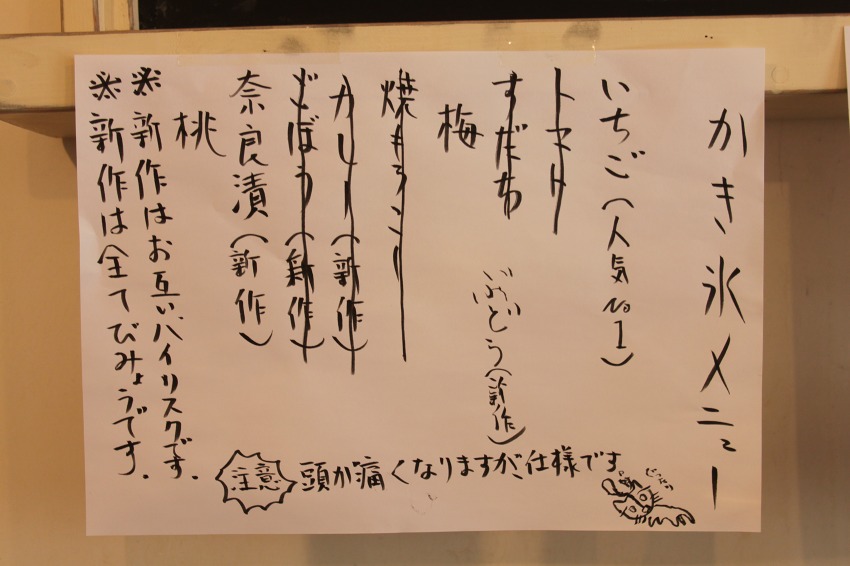 かき氷メニュー
いちご（人気No1）
トマト
すだち
ぶどう（新作）
梅
焼きもろこし
カレー（新作）
ごぼう（新作）
奈良漬（新作）
桃
※新作はお互いハイリスクです．
※新作は全てびみょうです．
注意 頭が痛くなりますが仕様です